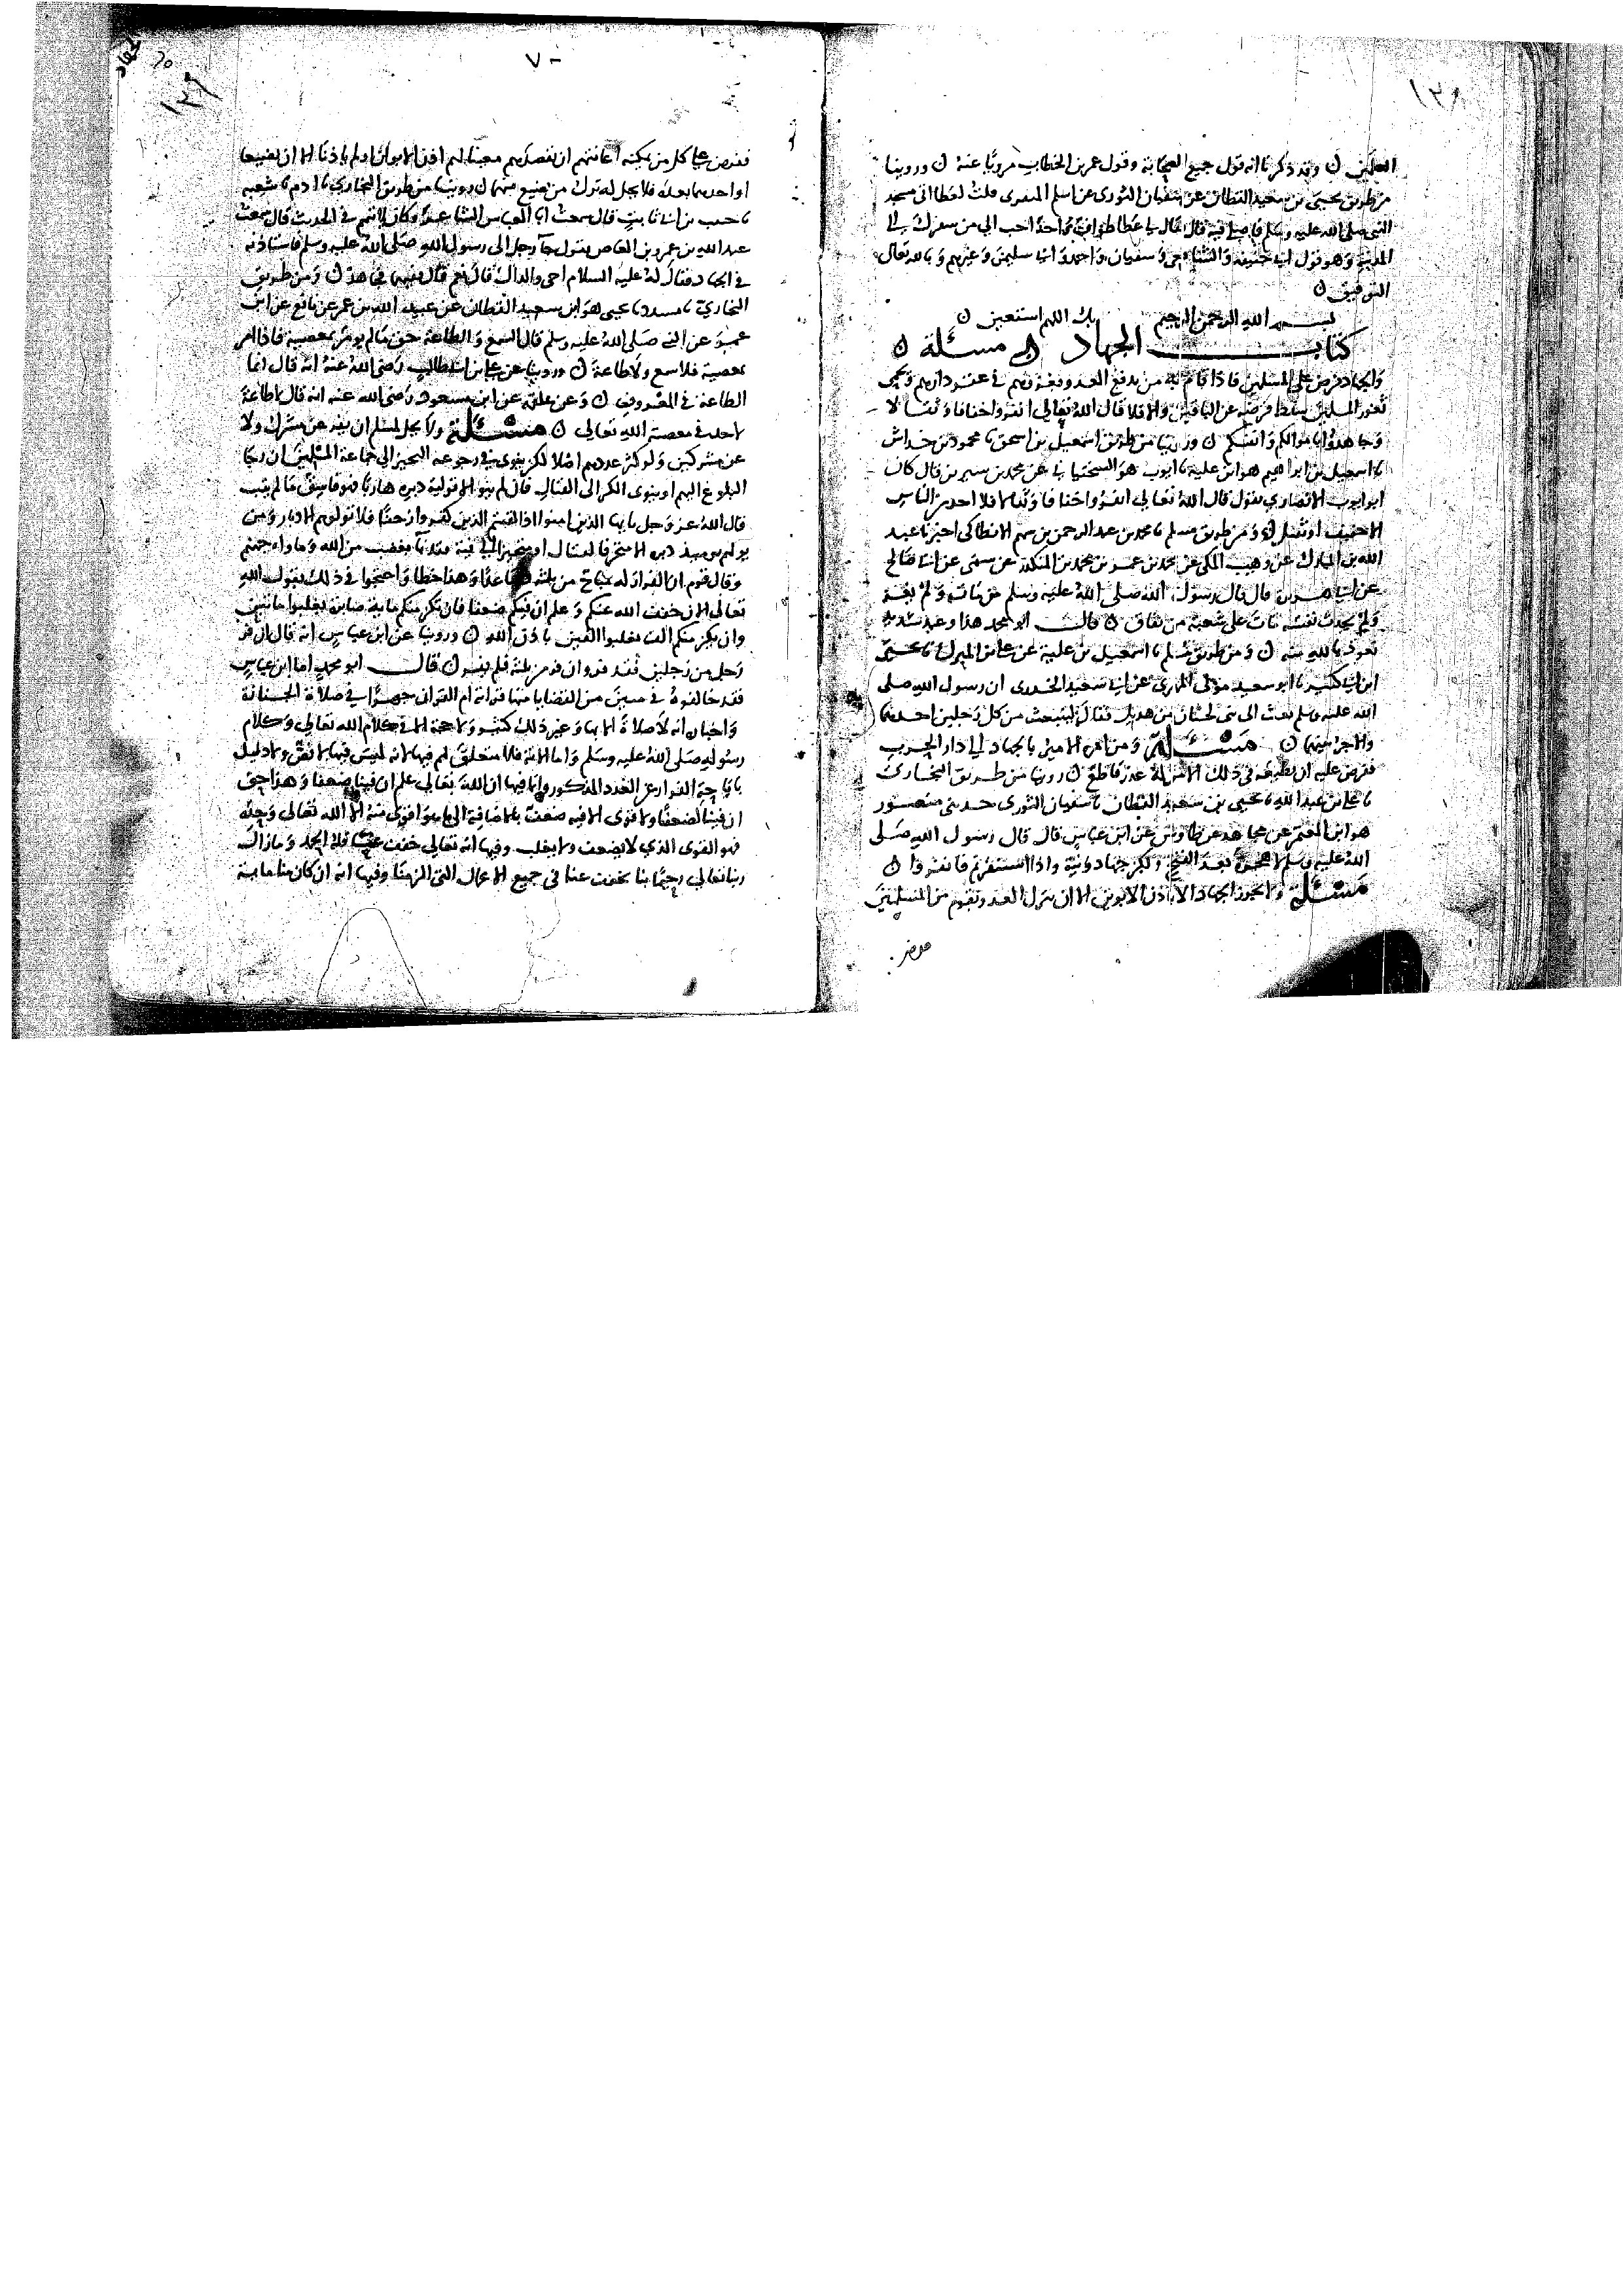 ١٢٨
العلمين ن وقد ذكرنا انه قول جميع الصحابة وقول عمر بن الخطاب مرويا عنه ن وروينا
من طريق يحيى بن سعيد القطان عن سفيان الثورى عن اسلم المنقرى قلت لعطا اتى مسجد
النبى صلى الله عليه وسلم فاصلى فيه قال فقال لى عطا طواف واحد احب الى من سفرك الى
المدينة وهو قول ابى حنيفة والشافعى وسفيان واحمد وابى سليمن وغيرهم وبالله تعالى
التوفيق ن
بسم الله الرحمن الرحيم بك اللهم استعين ن
كتاب الجهاد مسئلة ن
والجهاد فرض على المسلمين فاذا قام به من يدفع العدو ويغزوهم فى عقر دارهم ويحمى
ثغور المسلمين سقط فرضه عن الباقين والا فلا قال الله تعالى انفروا خفافا وثقالا
وجاهدوا باموالكم وانفسكم ن وروينا من طريق اسمعيل بن اسحق نا محمود بن خداش
نا اسمعيل بن ابراهيم هو ابن علية نا ايوب هو السختيانى عن محمد بن سيرين قال كان
ابو ايوب الانصارى يقول قال الله تعالى انفروا خفافا وثقالا فلا احد من الناس
الا خفيف او ثقيل ن ومن طريق مسلم نا محمد بن عبد الرحمن بن سهم الانطاكى اخبرنا عبد
الله بن المبارك عن وهيب المكى عن محمد بن عمر بن محمد بن المنكدر عن سمى عن ابى صالح
عن ابى هريرة قال قال رسول الله صلى الله عليه وسلم من مات ولم يغز
ولم يحدث نفسه مات على شعبة من نفاق ن قال ابو محمد هذا وعيد شديد
نعوذ بالله منه ن ومن طريق مسلم نا اسمعيل بن علية عن على بن المبرك نا يحيى
ابن ابى كثير نا ابو سعيد مولى المهرى عن ابى سعيد الخدرى ان رسول الله صلى
الله عليه وسلم بعث الى بنى لحيان من هذيل فقال لينبعث من كل رجلين احدهما
والاجر بينهما ن مسئلة ومن امره الامير بالجهاد الى دار الحرب
ففرض عليه ان يطيعه فى ذلك الا من له عذر قاطع ن روينا من طريق البخارى
نا على بن عبد الله نا يحيى بن سعيد القطان نا سفيان الثورى حدثنى منصور
هو ابن المعتمر عن مجاهد عن طاوس عن ابن عباس قال قال رسول الله صلى
الله عليه وسلم لا هجرة بعد الفتح ولكن جهاد ونية واذا استنفرتم فانفروا ن
مسئلة ولا يجوز الجهاد الا باذن الابوين الا ان ينزل العدو بقوم من المسلمين
ففرض
٧٠
الجهاد
١٢٩
ففرض على كل من يمكنه اعانتهم ان يقصدهم مغيثا لهم اذن الابوان او لم ياذنا الا ان يضيعا
او احدهما بعده فلا يحل له ترك من يضيع منهما ن روينا من طريق البخارى نا ادم نا شعبة
نا حبيب بن ابى ثابت قال سمعت ابا العباس الشاعر وكان لا يتهم فى الحديث قال سمعت
عبد الله بن عمرو بن العاص يقول جا رجل الى رسول الله صلى الله عليه وسلم فاستاذنه
فى الجهاد فقال له عليه السلام احى والداك قال نعم قال ففيهما فجاهد ن ومن طريق
البخارى نا مسدد نا يحيى هو ابن سعيد القطان عن عبيد الله بن عمر عن نافع عن ابن
عمر عن النبى صلى الله عليه وسلم قال السمع والطاعة حق ما لم يومر بمعصية فاذا امر
بمعصية فلا سمع ولا طاعة ن وروينا عن على بن ابى طالب رضى الله عنه انه قال انما
الطاعة فى المعروف ن وعن علقمة عن ابن مسعود رضى الله عنه انه قال لا طاعة
لاحد فى معصية الله تعالى ن مسئلة ولا يحل لمسلم ان يفر عن مشرك ولا
عن مشركين ولو كثر عددهم اصلا لكن ينوى فى رجوعه التحيز الى جماعة المسلمين ان رجا
البلوغ اليهم او ينوى الكر الى القتال فان لم ينو الا تولية دبره هاربا فهو فاسق ما لم يتب
قال الله عز وجل يايها الذين امنوا اذا لقيتم الذين كفروا زحفا فلا تولوهم الادبار ومن
يولهم يومئذ دبره الا متحرفا لقتال او متحيزا الى فئة فقد بآ بغضب من الله وماواه جهنم
وقال قوم ان الفرار له مباح من ثلثة فصاعدا وهذا خطا واحتجوا فى ذلك بقول الله
تعالى الان خفف الله عنكم وعلم ان فيكم ضعفا فان تكن منكم ماية صابرة يغلبوا مائتين
وان يكن منكم الف يغلبوا الفين باذن الله ن وروينا عن ابن عباس انه قال ان فر
رجل من رجلين فقد فر وان فر من ثلثة فلم يفر ن قال ابو محمد اما ابن عباس
فقد خالفوه فى مئين من القضايا منها قراته ام القران جهرا فى صلاة الجنازة
واخباره انه لا صلاة الا بها وغير ذلك كثير ولا حجة الا فى كلام الله تعالى وكلام
رسوله صلى الله عليه وسلم واما الاية فلا متعلق لهم فيها لانه ليس فيها لا نص ولا دليل
باباحة الفرار عن العدد المذكور وانما فيها ان الله تعالى علم ان فينا ضعفا وهذا حق
ان فينا لضعفا ولا قوى الا فيه ضعف بالاضافة الى ما هو اقوى منه الا الله تعالى وحده
فهو القوى الذى لا يضعف ولا يغلب وفيها انه تعالى خفف عنا فله الحمد وما زال
ربنا تعالى رحيما بنا يخفف عنا فى جميع الاعمال التى الزمنا وفيها انه ان كان منا ماية